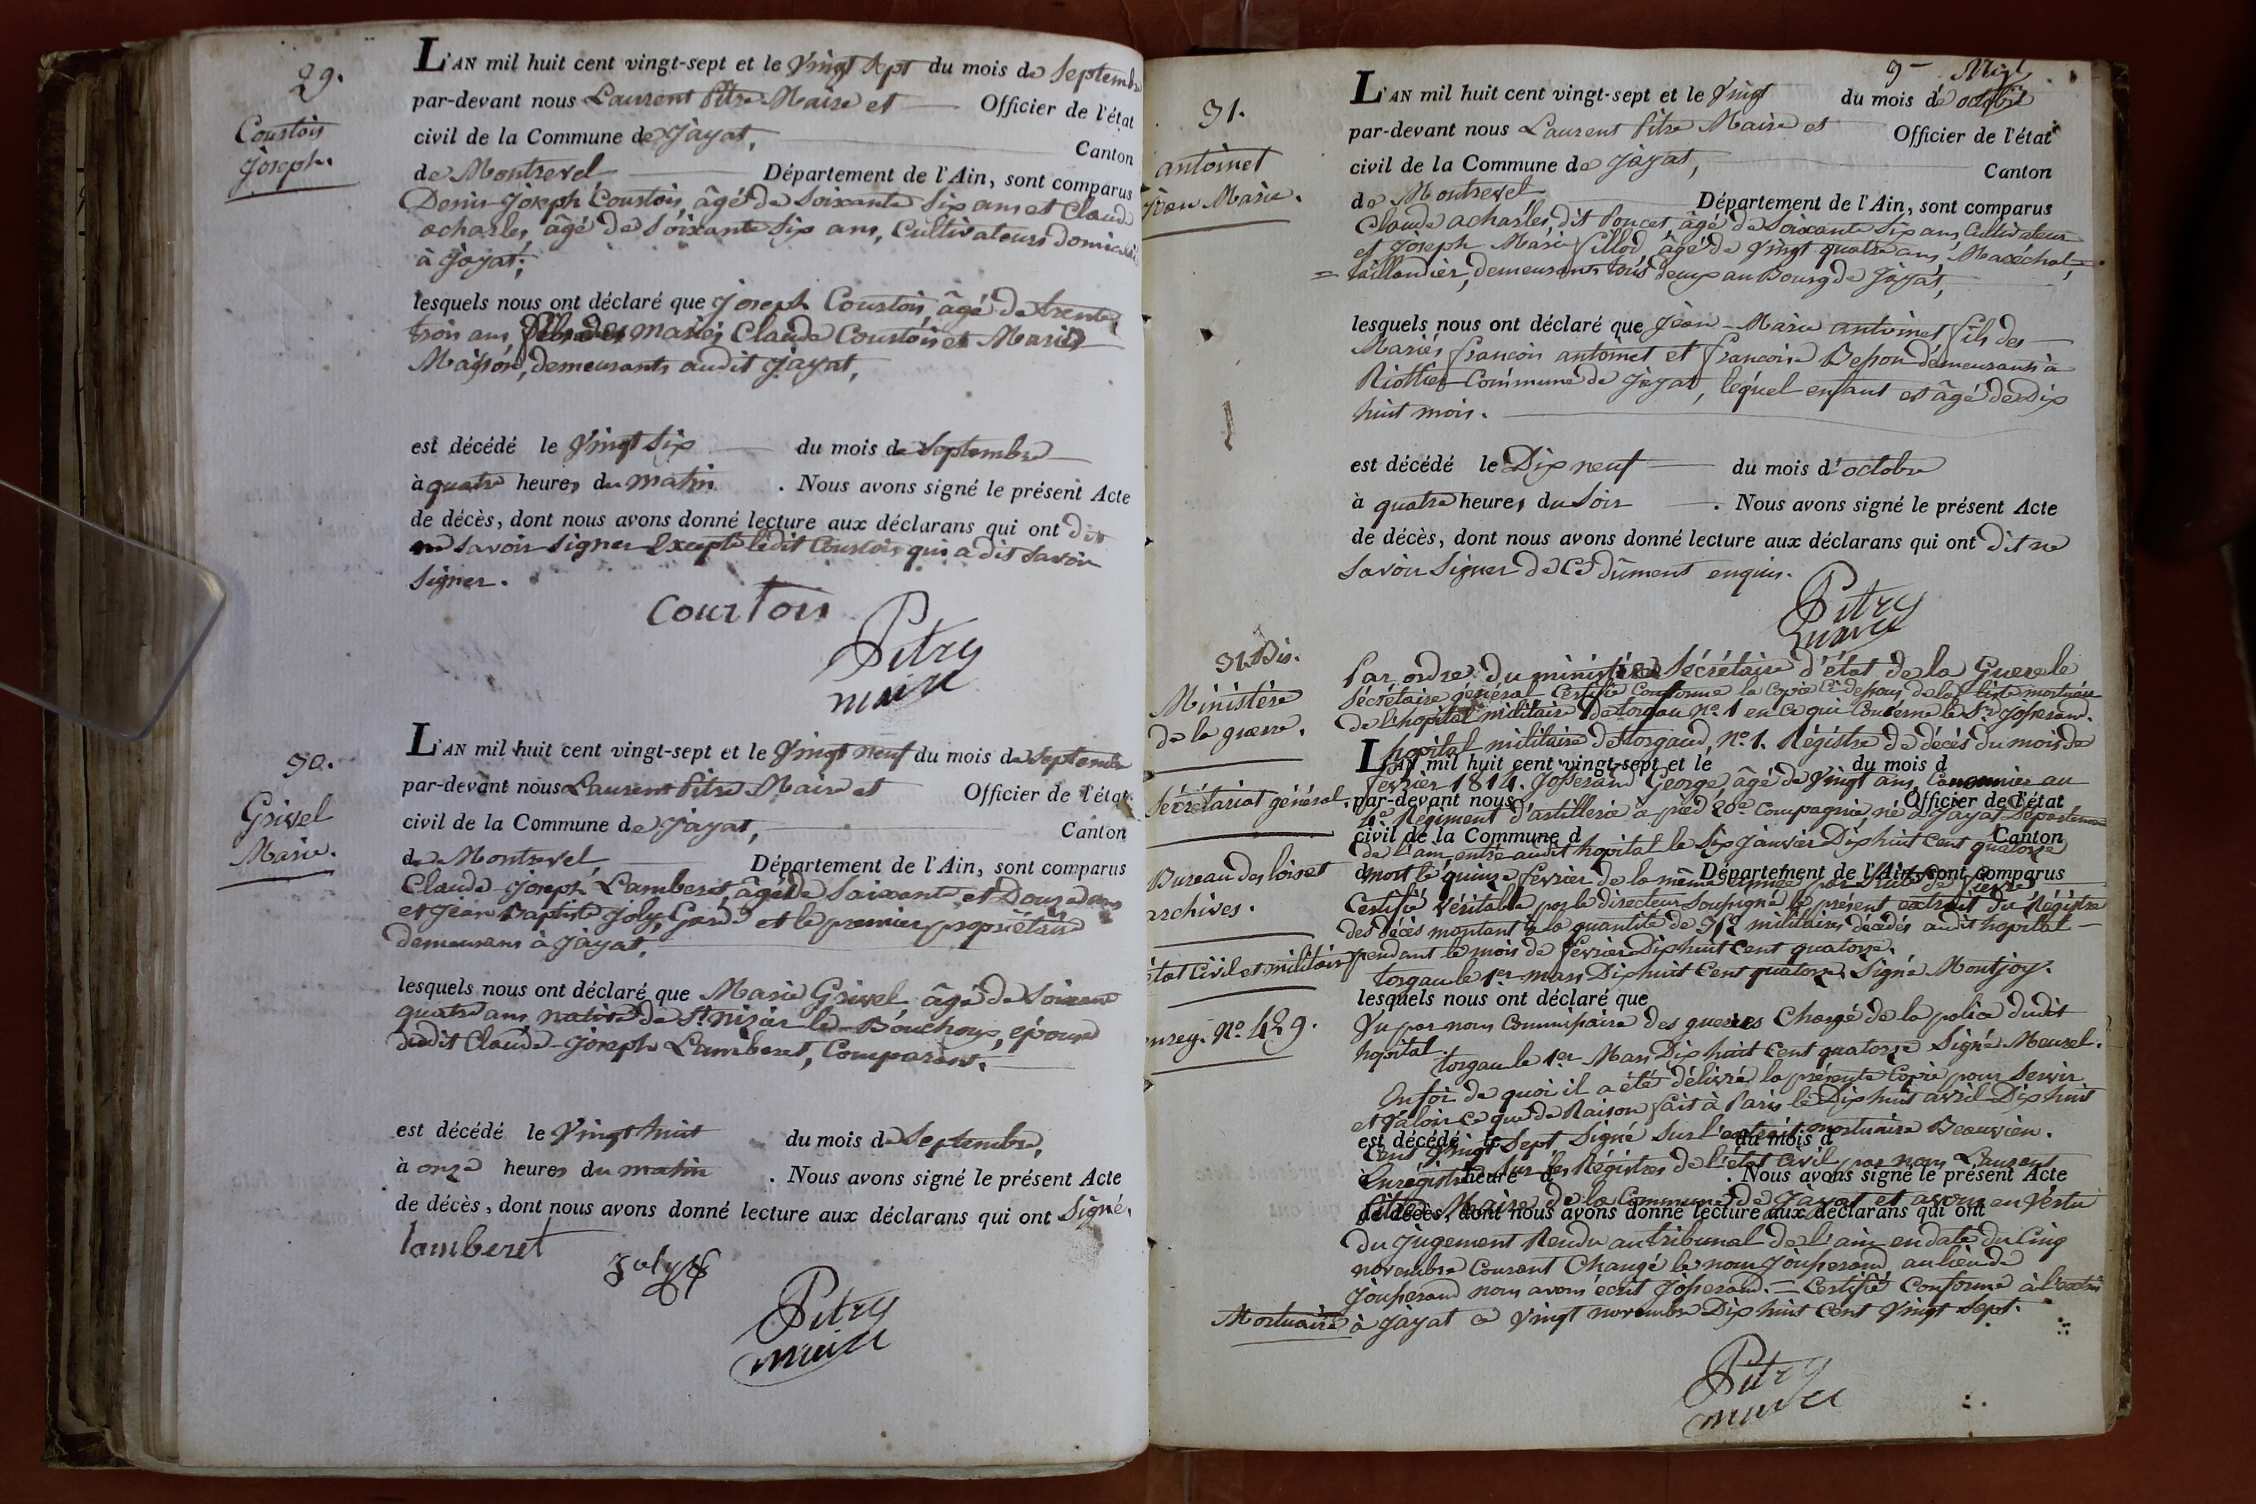 29.
Courtois
Joseph.
L'AN mil huit cent vingt-sept et le Vingt sept du mois de Septembre
par-devant nous Laurent Pitre Maire et Officier de l'état
civil de la Commune de Jayat, Canton
de Montrevel Département de l'Ain, sont comparus
Denis-Joseph Courtois, âgé de Soixante Six ans et Claude
acharles, âgé de Soixante Six ans, Cultivateurs domiciliés
à Jayat,
lesquels nous ont déclaré que Joseph Courtois, âgé de trente
trois ans, fils des mariés Claude Courtois et Marie
demeurants audit Jayat,
est décédé le Vingt Six du mois de Septembre
à quatre heures du matin. Nous avons signé le présent Acte
de décès, dont nous avons donné lecture aux déclarans qui ont dit
ne savoir signer Excepté ledit Courtois qui a dit savoir
signer.
Courtois
Pitre
maire
30.
Grivel
Marie.
L'AN mil huit cent vingt-sept et le Vingt neuf du mois de Septembre
par-devant nous Laurent Pitre Maire et Officier de l'état
civil de la Commune de Jayat, Canton
de Montrevel Département de l'Ain, sont comparus
Claude-Joseph Lamberet, âgé de Soixante et Douze ans
et Jean Baptiste Joly, Garde et le premier propriétaire
demeurans à Jayat,
lesquels nous ont déclaré que Marie Grivel âgé de Soixante
quatre ans native de St. nizier le Bouchoux, épouse
dudit Claude-Joseph Lamberet, Comparant.
est décédé le Vingt huit du mois de Septembre,
à onze heures du matin. Nous avons signé le présent Acte
de décès, dont nous avons donné lecture aux déclarans qui ont Signé.
lamberet
Joly
Pitre
maire
31.
antoinet
Jean Marie.
L'AN mil huit cent vingt-sept et le Vingt du mois de octobre
par-devant nous Laurent Pitre Maire et Officier de l'état
civil de la Commune de Jayat, Canton
de Montrevel Département de l'Ain, sont comparus
Claude acharles, dit Poncet, âgé de Soixante Six ans, Cultivateur
et Joseph Marie Fillod, âgé de Vingt quatre ans, Maréchal,
= taillandier, demeurans tous deux au Bourg de Jayat,
lesquels nous ont déclaré que Jean-Marie antoinet fils des
Mariés françois antoinet et françoise Besson demeurants à
Commune de Jayat, lequel enfant est âgé de Dix
huit mois.
est décédé le Dix neuf du mois d'octobre
à quatre heures du Soir. Nous avons signé le présent Acte
de décès, dont nous avons donné lecture aux déclarans qui ont dit ne
savoir signer de Ce dûment enquis.
Pitre
maire
31. Bis.
Ministère
de la guerre.
Secrétariat général.
Bureau des lois et
archives.
état Civil et militaire
enreg. No. 429.
Par ordre du ministre Secrétaire d'état de la Guerre le
Secrétaire général Certifie Conforme la Copie Ci-dessous de la liste mortuaire
de l'hopital militaire de torgau No. 1 en ce qui Concerne le Sr. Josserand.
hopital militaire de torgaud, No. 1. Régistre de décès du mois de
L'AN mil huit cent vingt-sept et le du mois d
fevrier 1814. Josserand George, âgé de Vingt ans, Canonnier au
par-devant nous Officier de l'état
Régiment d'artillerie à pied 20e. Compagnie, né à Jayat Département
civil de la Commune d Canton
de l'ain, entré audit hopital le Six Janvier Dix huit Cent quatorze
d Département de l'Ain, sont comparus
mort le quinze fevrier de la même année par suite de fievre
Certifié Véritable par le directeur Soussigné le présent extrait du Régistre
des décès montant à la quantité de militaires décédés audit hopital
pendant le mois de fevrier Dix huit Cent quatorze.
torgau le 1er. mars Dix huit Cent quatorze. Signé Montjoy.
lesquels nous ont déclaré que
Vu par nous Commissaire des guerres Chargé de la police dudit
hopital.
torgau le 1er Mars Dix huit Cent quatorze Signé Meusel.
En foi de quoi il a été délivré la présente Copie pour Servir
et Valoir ce que de Raison fait à Paris le Dix huit avril Dix huit
est décédé le du mois d
Cent Vingt Sept, Signé Sur l'extrait mortuaire Beauvien.
heure d. Nous avons signé le présent Acte
Enregistré Sur les Régistres de l'état Civil par nous Laurent
Pitre Maire de la Commune de Jayat et avons en Vertu
de décès, dont nous avons donné lecture aux déclarans qui ont
du Jugement Rendu au tribunal de l'ain en date du Cinq
novembre Courant Changé le nom Jousserand, au lieu de
Jousserand nous avons écrit Josserand. = Certifié Conforme à l'extrait
Mortuaire à Jayat ce Vingt novembre Dix huit Cent Vingt Sept.
Pitre
maire